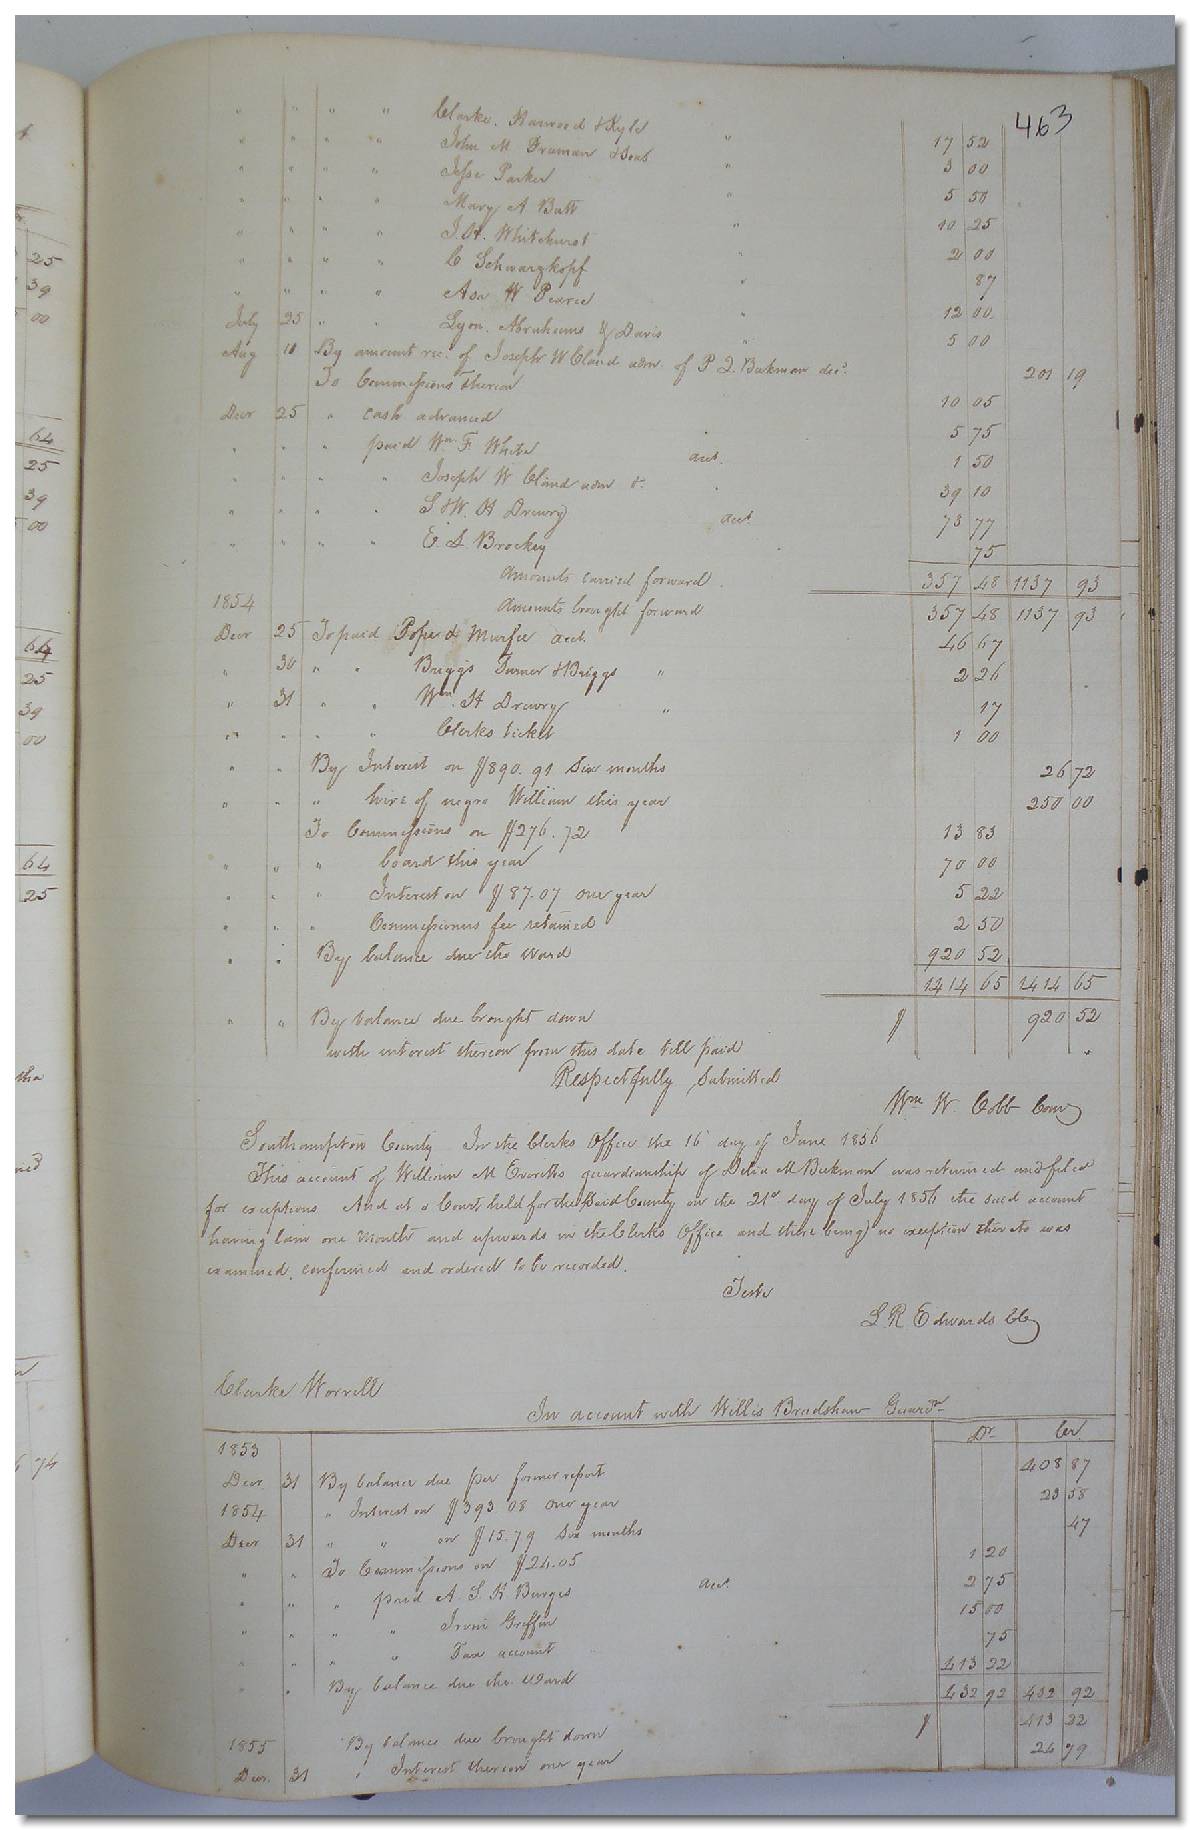 463
" " " " Clarke, Harwood & Kyle " 17 52
" " " " John M Freeman & Sons " 3 00
" " " " Jesse Parker " 5 50
" " " " Mary A Butt 10 25
" " " " J. H. Whitehurst " 2 00
" " " " C Schwarzkopf " 87
" " " " Asa W Pearce " 12 00
July 25 " " Lyon, Abrahams & Davis " 5 00
Aug 10 By amount rec. of Joseph W Claud adm. of P. Bukman dec'd 201 19
To Commissions thereon 10 05
Decr 25 " cash advanced 5 75
" " " paid Wm F. White act. 1 50
" " " " Joseph W Claud adm &. 39 10
" " " " S & W. H Drewry act. 73 77
" " " " E. S. Brockey 75
Amounts carried forward 357 48 1137 93
1854 Amounts brought forward 357 48 1137 93
Decr 25 To paid Pope & Murfee act. 46 67
" 30 " " Briggs Turner & Briggs " 2 26
" 31 " " Wm. H Drewry " 17
" " " " Clerks ticket 1 00
" " By Interest on $890.91 Six months 26 72
" " " hire of negro William this year 250 00
To Commissions on $276.72 13 83
" " " board this year 70 00
" " " Interest on $87.07 one year 5 22
" " " Commissioners fee retained 2 50
" " By balance due the ward 920 52
1414 65 1414 65
" " By balance due brought down $ 920 52
with interest thereon from this date till paid
Respectfully Submitted
Wm W. Cobb Comr
Southampton County In the Clerks Office the 16 day of June 1856
This account of William M Everetts guardianship of Delia M Bukman was returned and filed
for exceptions And at a Court held for the said County on the 21st day of July 1856 the said account
having lain one month and upwards in the Clerks Office and there being no exception thereto was
examined, confirmed and ordered to be recorded.
Teste
L R Edwards CC
Clarke Worrell
In account with Willis Bradshaw Guardn
Dr. Cr.
1853
Decr 31 By balance due per former report 408 87
1854 " Interest on $393 08 one year 23 58
Decr 31 " " on $15.79 Six months 47
" " To Commissions on $24.05 1 20
" " " paid A. S. H Burges act. 2 75
" " " " Irvin Griffin 15 00
" " " " Tax account 75
" " By balance due the Ward 413 22
432 92 432 92
By balance due brought down $ 413 22
1855
Decr. 31 " Interest thereon one year 24 79